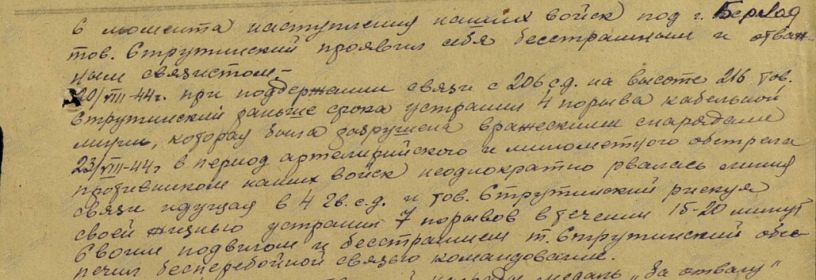 в момента наступления наших войск под г. Берлад
тов. Струтинский проявил себя бесстрашным и отваж-
ным связистом.-
20/VIII-44г. при поддержании связи с 206 с.д. на высоте 216 тов.
Струтинский раньше срока устранил 4 порыва кабельной
линии, которая была разрушена вражескими снарядами
23/VIII-44г в период артелирийского и минометного обстрела
противником наших войск неоднократно рвалась линия
связи идущая в 4 гв. с.д. и тов. Струтинский рискуя
своей жизнью устранил 7 порывов в течении 15-20 минут
Своим подвигом и бесстрашием т. Струтинский обес-
печил бесперебойной связью командование.
медаль „За отвагу"